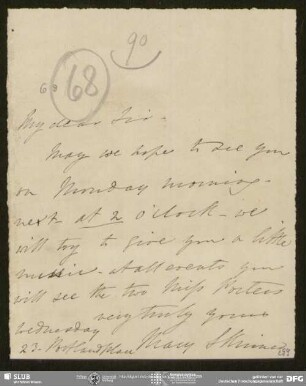 90
68
My dear Sir -
May we hope to see you
on Monday morning -
next at 2 o'clock - we
will try to give you a little
music - at all events you
will see the two Miss Porters
very truly yours
Wednesday
23 - Portland Place Mary Skinner
SLUB
DFG